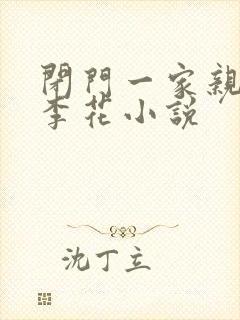 閉門一家親
李花小說
沈丁立